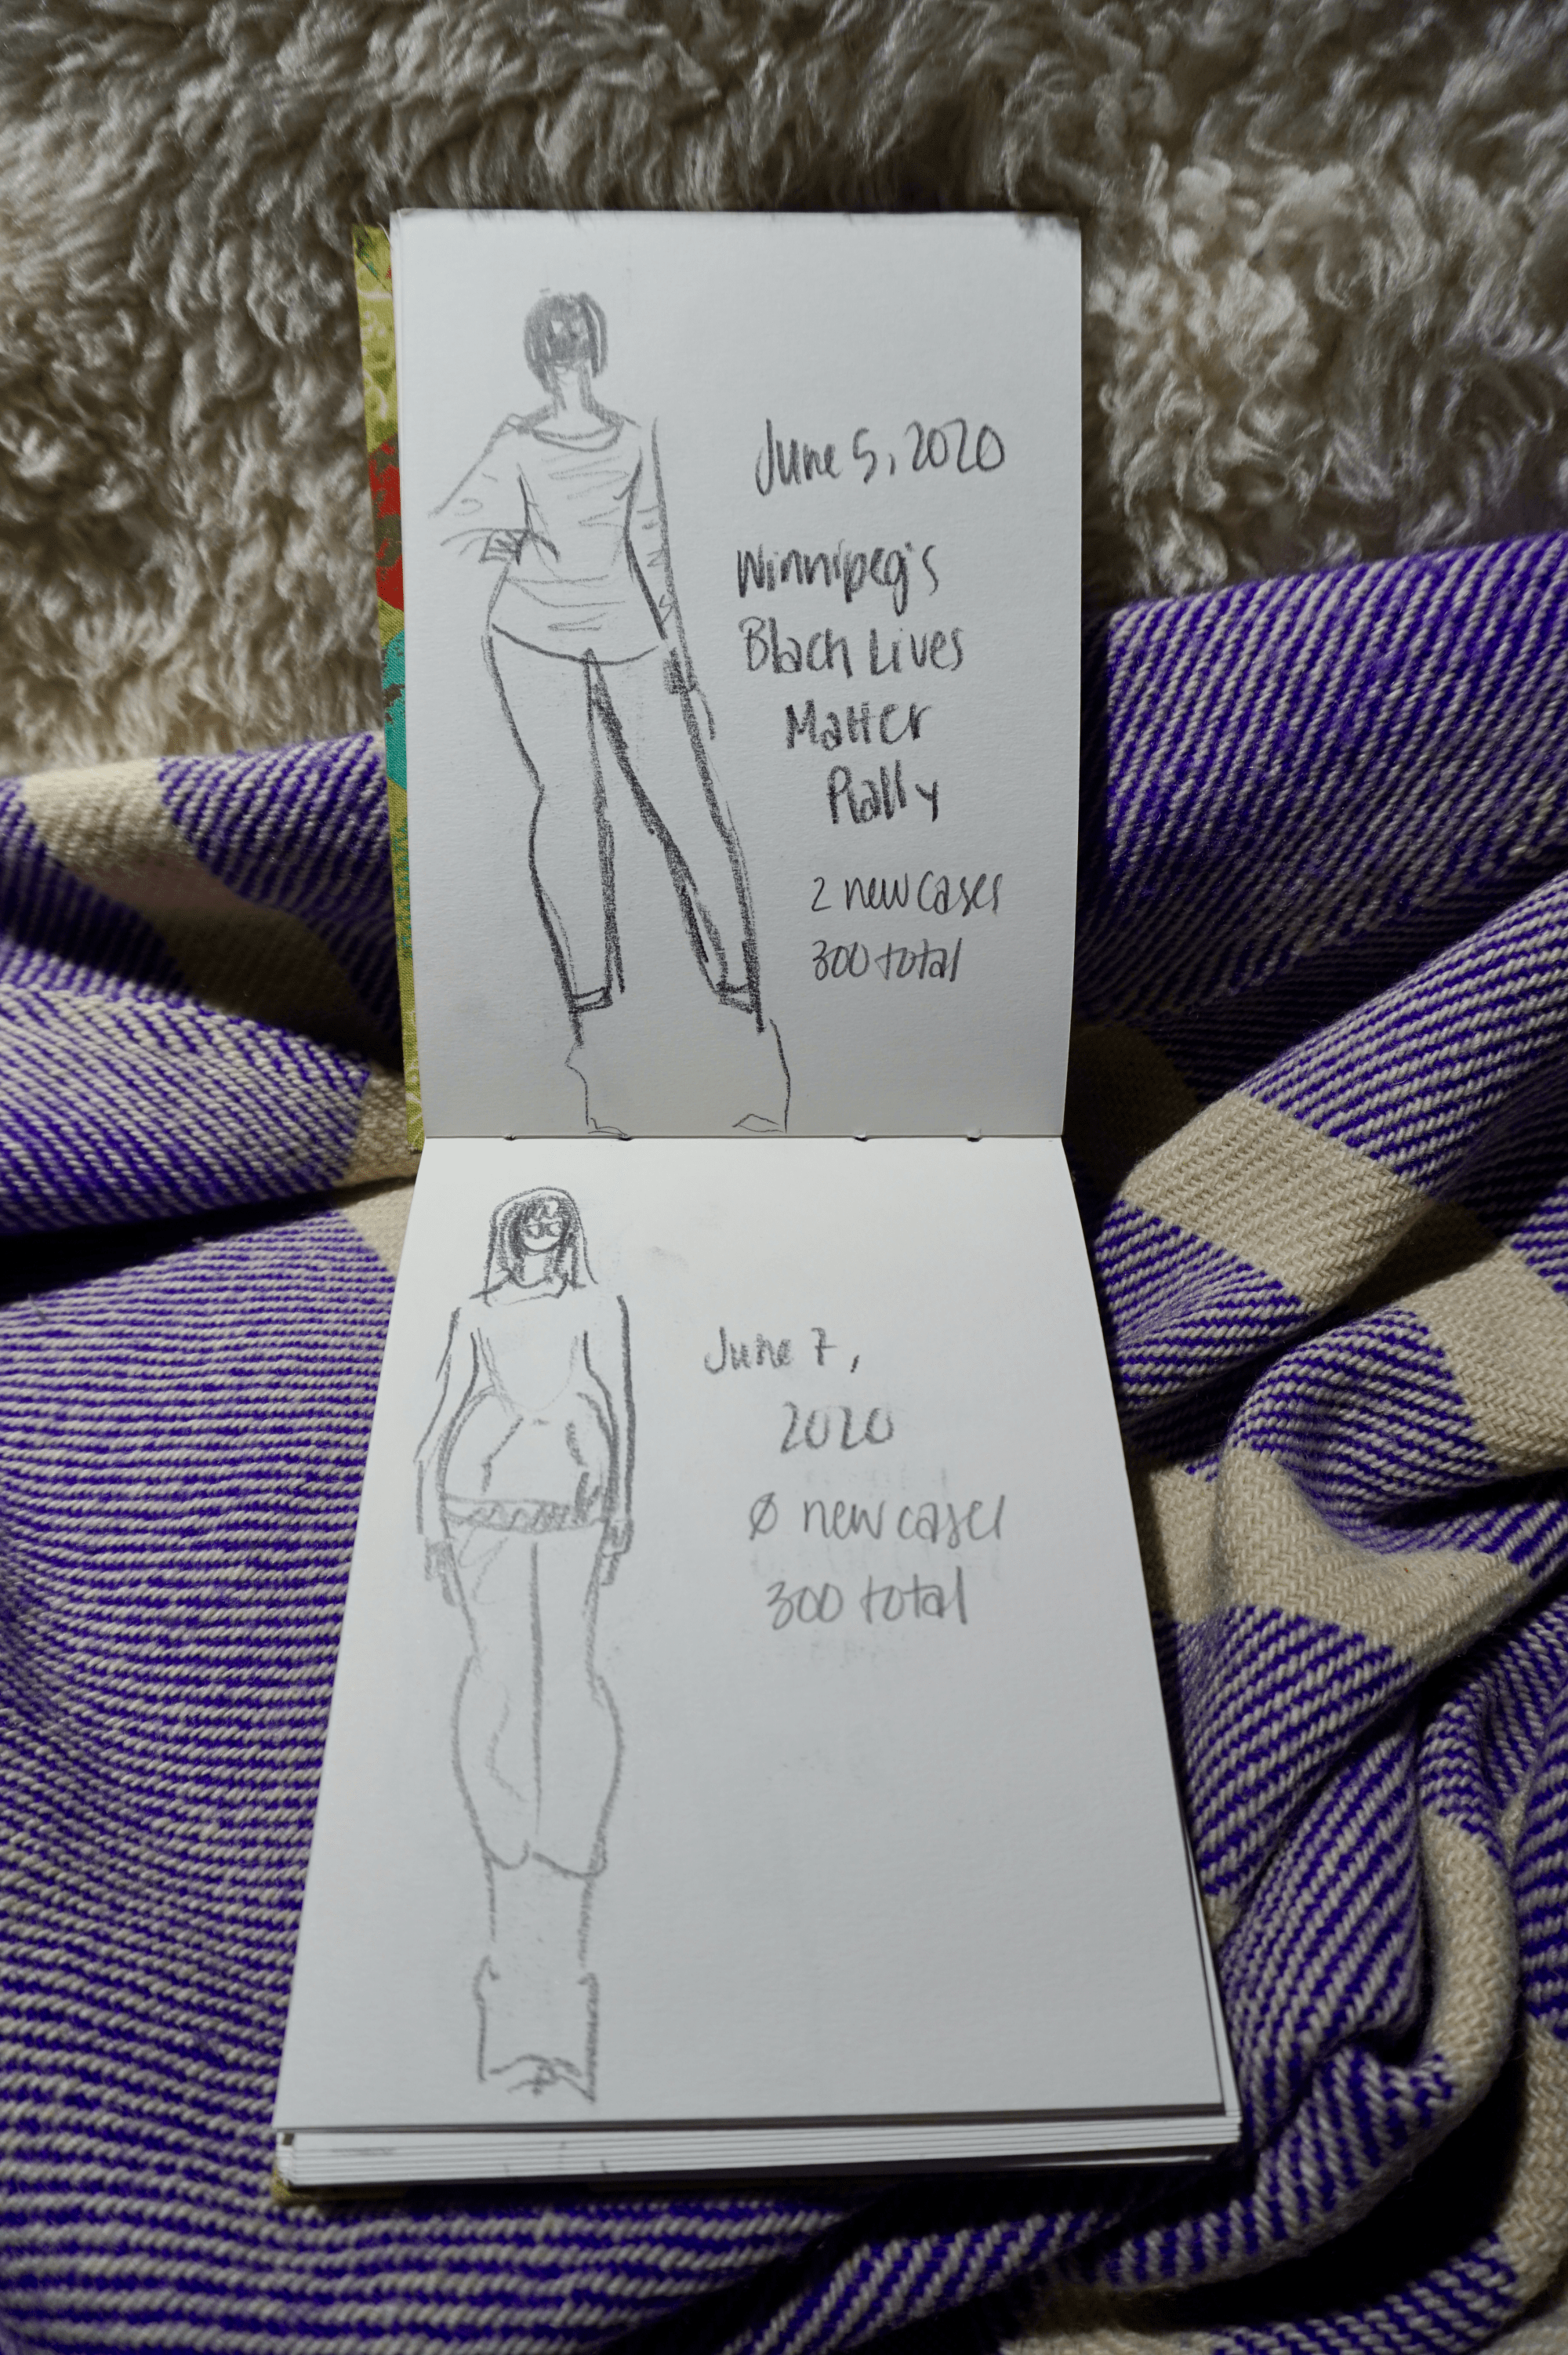 June 5, 2020
Winnipeg's
Black Lives
Matter
Rally
2 new cases
300 total
June 7,
2020
Ø new cases
300 total